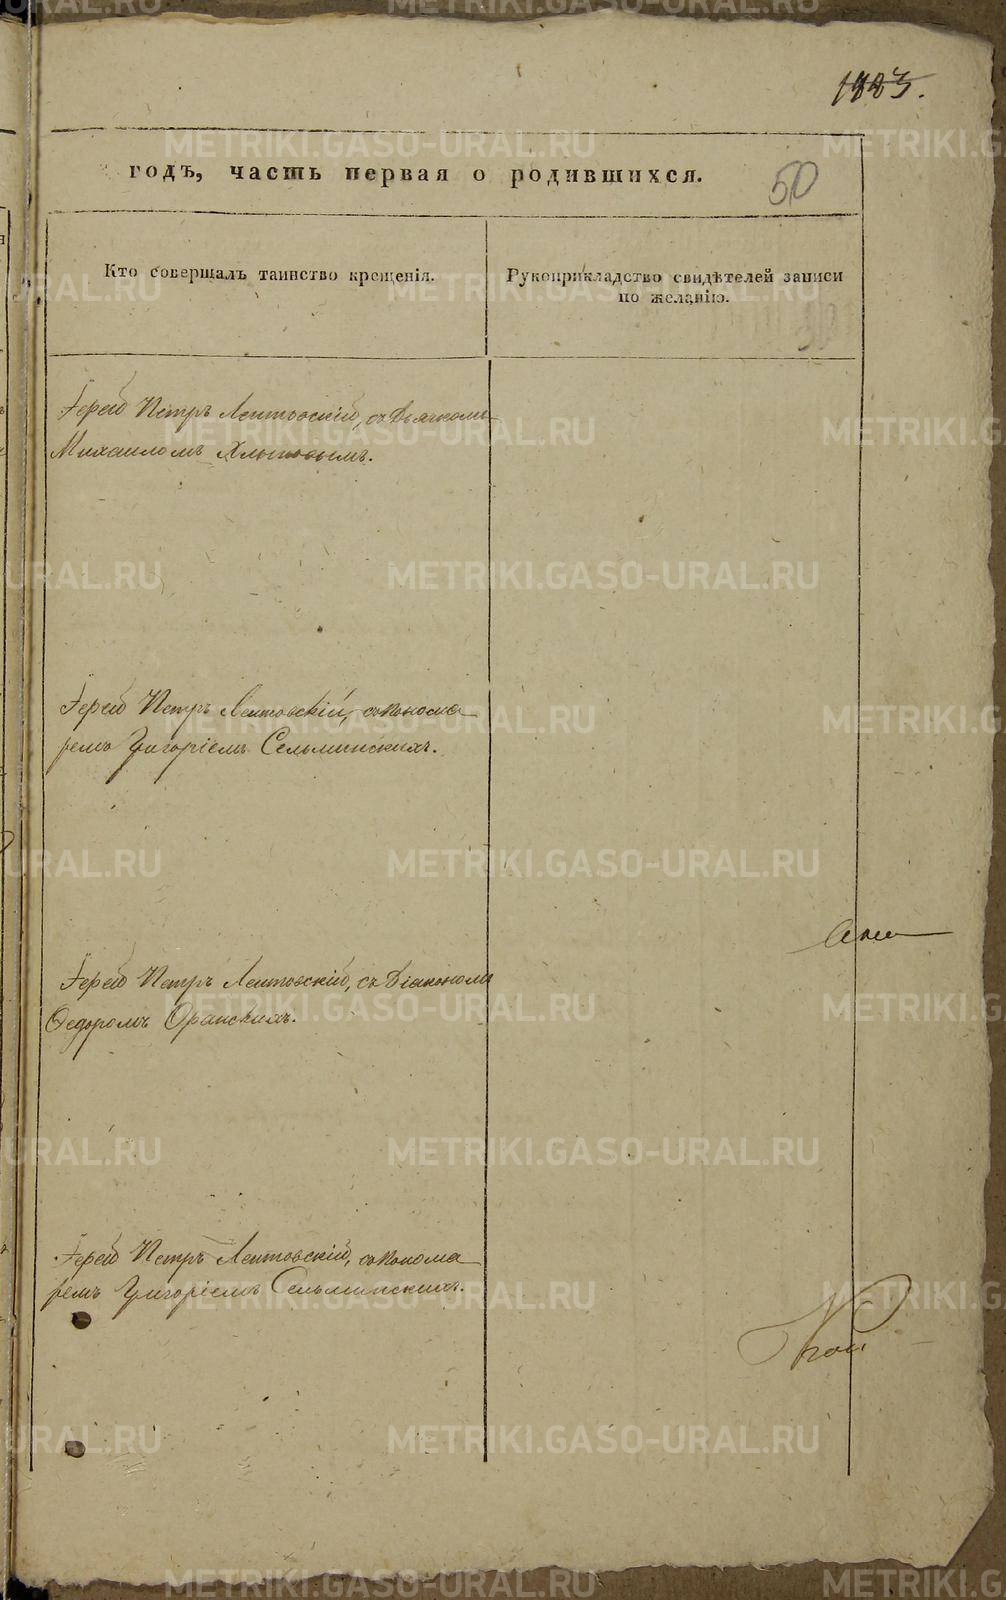 1883.
годъ, часть первая о родившихся.
50
Кто совершалъ таинство крещенія.
Рукоприкладство свидѣтелей записи
по желанію.
Іерей Петръ Лентовскій, съ Дьячкомъ
Михаиломъ Хлыновымъ.
Іерей Петръ Лентовскій, съ Понома
ремъ Григоріемъ Сельминскихъ.
Іерей Петръ Лентовскій, съ Діакономъ
Ѳедоромъ Оранскихъ.
Іерей Петръ Лентовскій, съ Понома
ремъ Григоріемъ Сельминскихъ.
METRIKI.GASO-URAL.RU